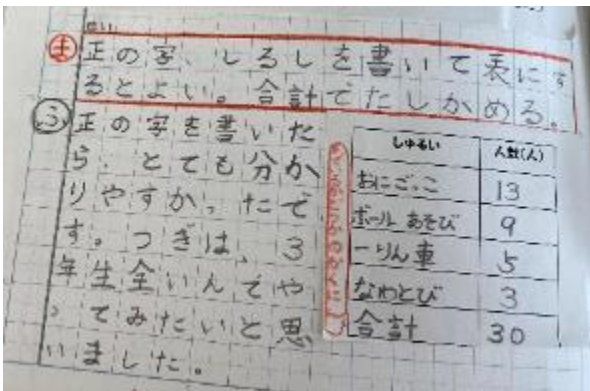 せい
ま 正の字、しるしを書いて表にす
るとよい。合計でたしかめる。
ふ 正の字を書いた
ら、とても分か
りやすかったで
す。つぎは、3
年生全いんでや
ってみたいと思
いました。
しゅるい 人数(人)
おにごっこ 13
ボールあそび 9
一りん車 5
なわとび 3
合計 30